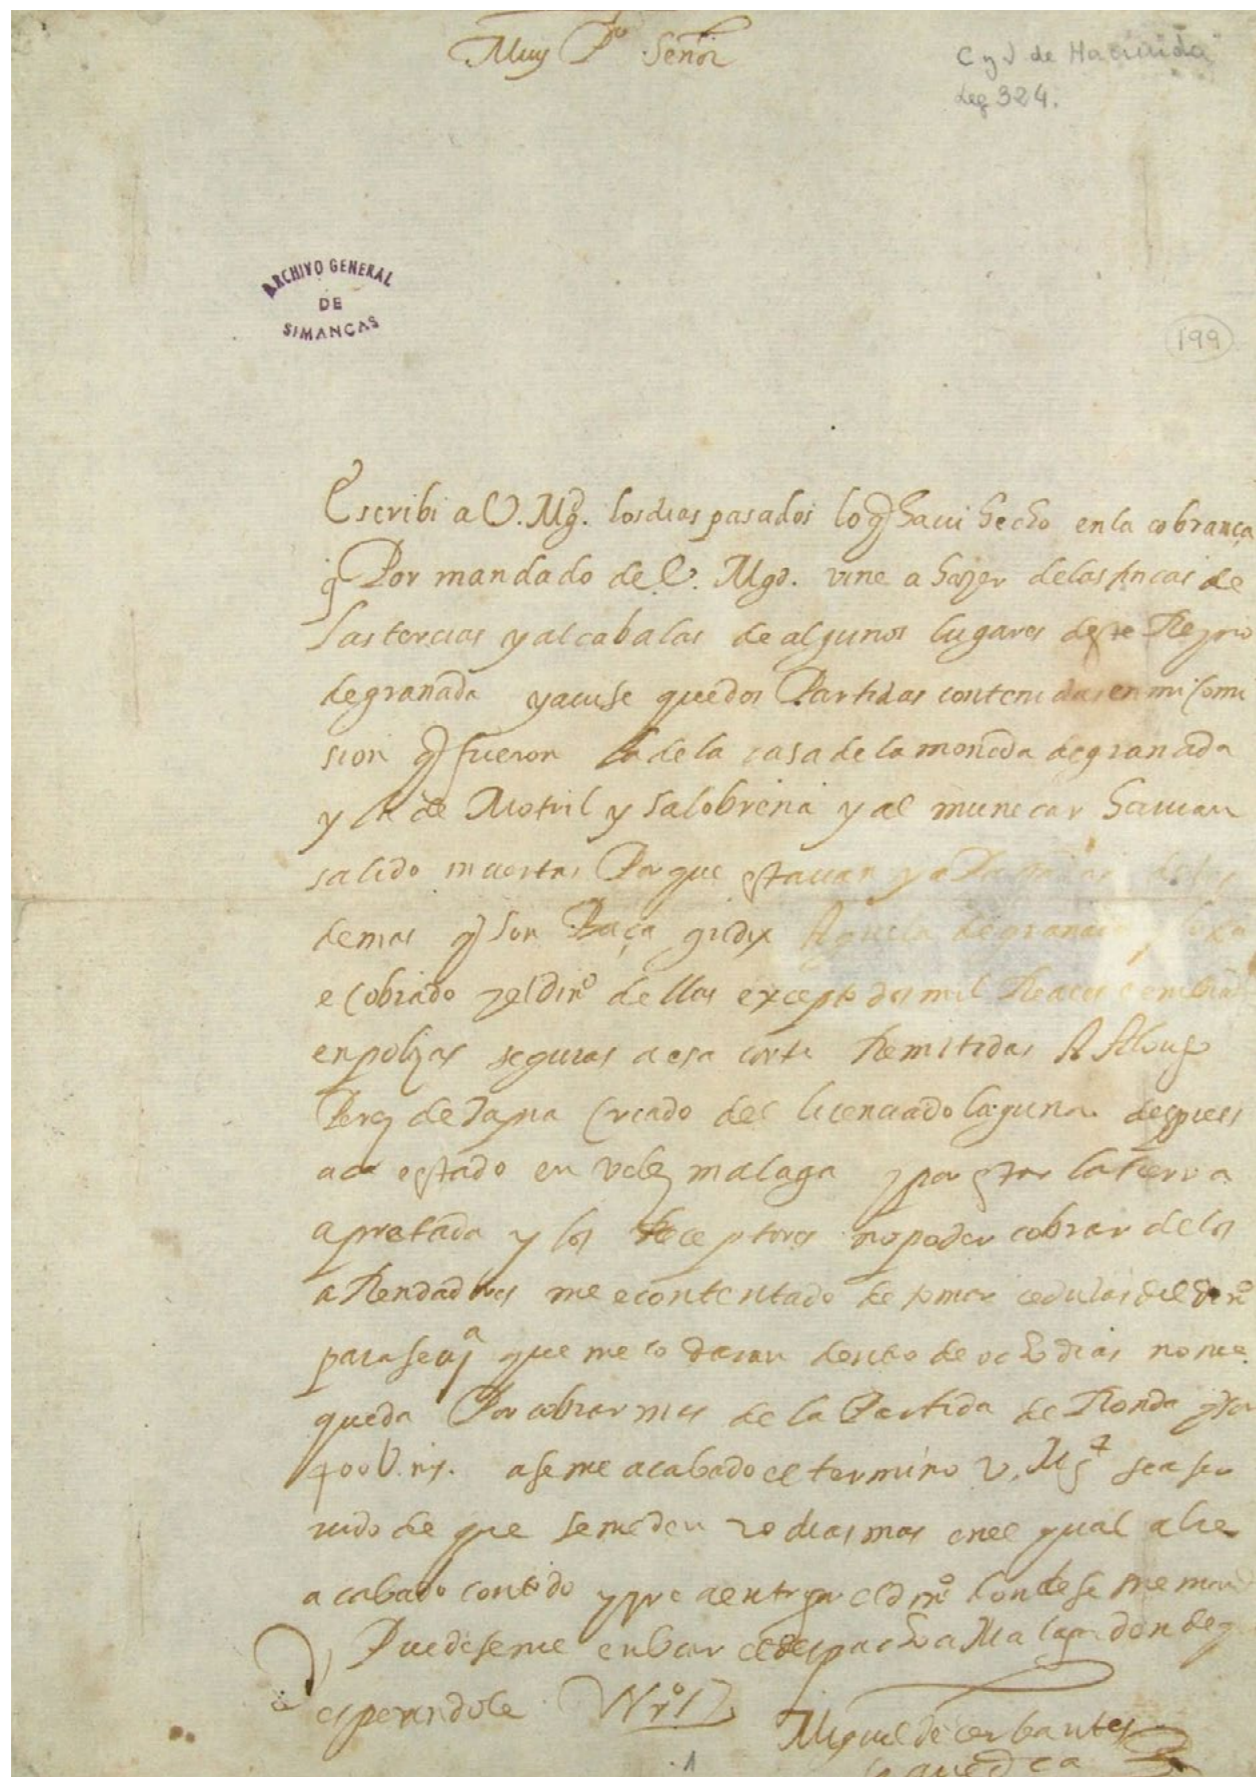 Muy Po Señor
C y J de Hacienda
Leg 324.
ARCHIVO GENERAL
DE
SIMANCAS
199
Escribi a V. Mgd. los dias pasados lo q havi hecho en la cobrança
q Por mandado de V. Mgd. vine a hazer de las fincas de
las tercias y alcabalas de algunos lugares deste Reyno
de granada y avise que dos Partidas contenidas en mi comi
sion q fueron la de la casa de la moneda de granada
y la de Motril y salobreña y al muñecar havian
salido inciertas Porque estavan ya
demas q son Baça guidix Aguela de granada y loxa
e cobrado y el diro dellas excepto dos mil Reales e embiado
en polizas seguras a esa corte Remitidas A Alonso
Perez de Tapia criado del licenciado laguna despues
aca estado en velez malaga y por estar la tierra
apretada y los Receptores no poder cobrar de los
aRendadores me e contentado de tomar cedulas del diro
para sevja que me lo daran dentro de ocho dias no me
queda Por cobrar mas de la Partida de Ronda q son
400U. mrs. aseme acabado el termino V. Mgd sea ser
vido de que se me den 20 dias mas en el qual
acabado con todo y el diro donde se me mand
Puedeseme enbiar el despacho a Malaga donde q
esperandole
Miguel de cerbantes
saavedra
1